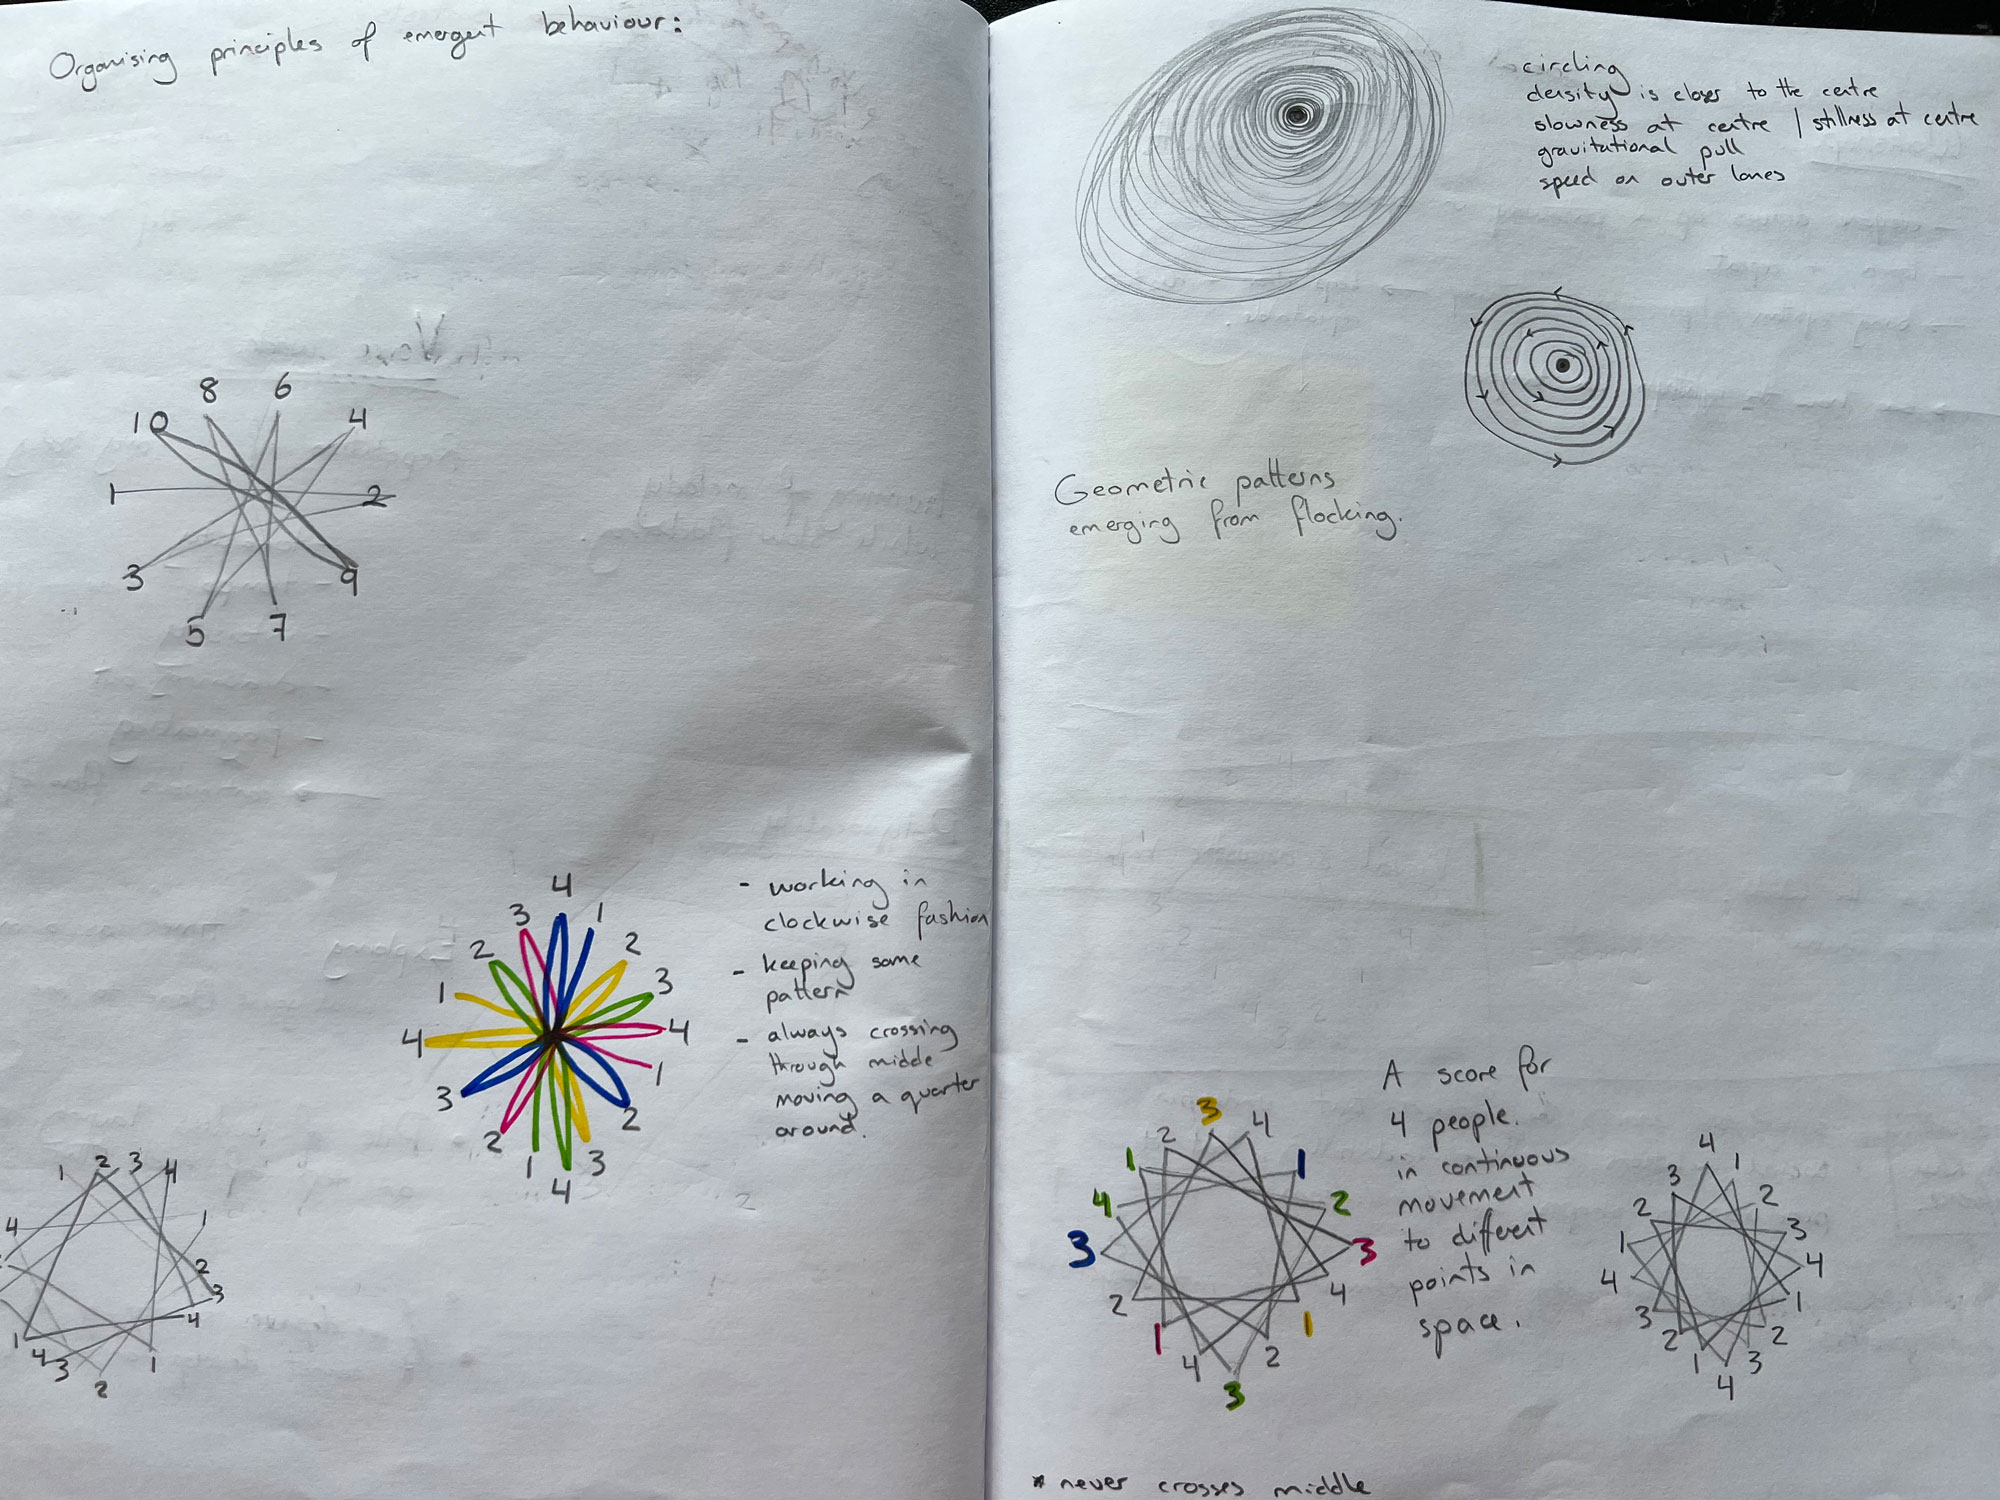 Organising principles of emergent behaviour:
8 6
10 4
1 2
3 9
5 7
4
3 1
2 2
1 3
4 4
3 1
2 2
1 3
4
- working in
clockwise fashion
- keeping same
pattern
- always crossing
through middle
moving a quarter
around.
1 2 3 4
4 1
2
3
1 4
4 3 1
2
circling
density is closer to the centre
slowness at centre / stillness at centre
gravitational pull
speed on outer lanes
Geometric patterns
emerging from flocking.
3
2 4
1 1
4 2
3 3
2 4
1 1
4 2
3
A score for
4 people.
in continuous
movement
to different
points in
space.
4
3 1
2 2
1 3
4 4
3 1
2 2
1 3
4
* never crosses middle